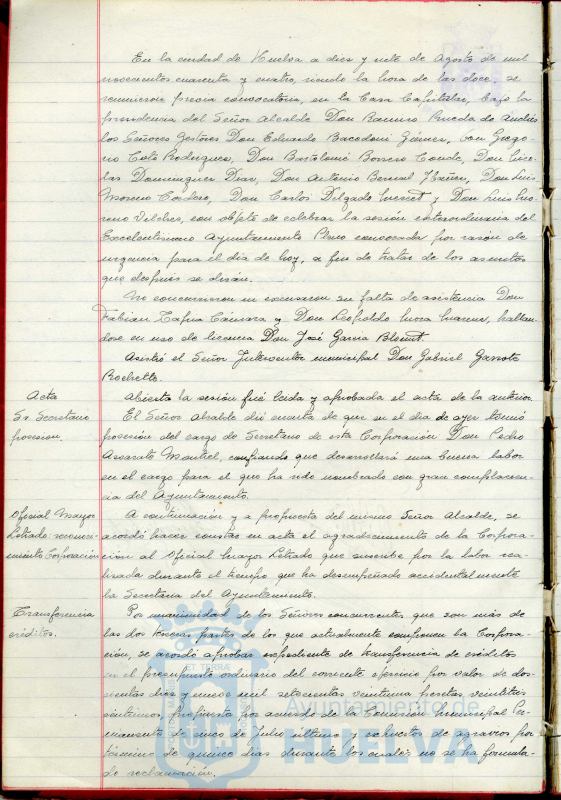 En la ciudad de Huelva a diez y siete de Agosto de mil
novecientos cuarenta y cuatro, siendo la hora de las doce, se
reunieron previa convocatoria, en la Casa Capitular, bajo la
presidencia del Señor Alcalde Don Ramiro Rueda de Andrés
los Señores Gestores Don Eduardo Bacedoni Gimenez, Don Grego-
rio Coto Rodriguez, Don Bartolomé Borrero Conde, Don Nico-
las Dominguez Diaz, Don Antonio Bernal Ibañez, Don Luis
Moreno Cordero, Don Carlos Delgado y Don Luis
Vilches, con objeto de celebrar la sesión extraordinaria del
Excelentísimo Ayuntamiento Pleno convocada por razón de
urgencia para el dia de hoy, a fin de tratar de los asuntos
que después se dirán.
No concurrieron ni excusaron su falta de asistencia Don
Fabian Tapia Cámara y Don Leopoldo hallan-
dose en uso de licencia Don José Garcia
Asistió el Señor Interventor municipal Don Gabriel Garrote
Rochette.
Acta
Abierta la sesión fué leida y aprobada el acta de la anterior.
Sr. Secretario
posesion.
El Señor Alcalde dió cuenta de que en el dia de ayer tomó
posesión del cargo de Secretario de esta Corporación Don Pedro
Montiel, confiando que desarrollará una buena labor
en el cargo para el que ha sido nombrado con gran complacen-
cia del Ayuntamiento.
Oficial Mayor
Letrado reconoci-
miento Corporación
A continuación y a propuesta del mismo Señor Alcalde, se
acordó hacer constar en acta el agradecimiento de la Corpora-
ción al Oficial Mayor Letrado que suscribe por la labor rea-
lizada durante el tiempo que ha desempeñado accidentalmente
la Secretaria del Ayuntamiento.
Transferencia
créditos.
Por unanimidad de los Señores concurrentes, que son más de
las dos terceras partes de los que actualmente componen la Corpora-
ción, se acordó aprobar expediente de transferencia de créditos
en el presupuesto ordinario del corriente ejercicio por valor de dos-
cientas diez y nueve mil setecientas veintiuna pesetas veintiseis
centimos, propuesta por acuerdo de la Comisión Municipal Per-
manente de cinco de Julio último y expuestas de agravios por
término de quince dias durante los cuales no se ha formula-
do reclamación.
ET TERRÆ
Ayuntamiento de
HUELVA